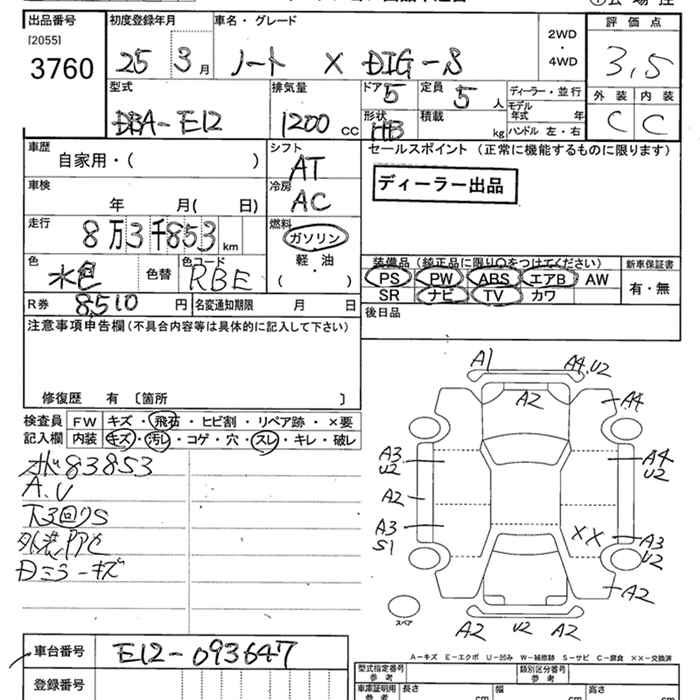 出品番号
[2055]
3760
初度登録年月
25 3月
車名・グレード
ノート X DIG-S
2WD
・
4WD
評価点
3,5
外装 内装
C C
型式
DBA-E12
排気量
1200 CC
ドア
5
定員
5 人
形状
HB
積載
kg
ディーラー・並行
モデル
年式 年
ハンドル 左・右
車歴
自家用・( )
シフト
AT
セールスポイント (正常に機能するものに限ります)
ディーラー出品
車検
年 月( 日)
冷房
AC
走行
8万3千853 km
燃料
ガソリン
軽・油
( )
色
水色
色替
色コード
RBE
装備品 (純正品に限り○をつけてください)
PS PW ABS エアB AW
SR ナビ TV カワ
新車保証書
有・無
R券 8,510 円
名変通知期限 月 日
後日品
注意事項申告欄(不具合内容等は具体的に記入して下さい)
修復歴 有 〔箇所 〕
検査員
記入欄
FW キズ・飛石・ヒビ割・リペア跡・×要
内装 キズ・汚レ・コゲ・穴・スレ・キレ・破レ
83853
A.U
下回りS
Dミラーキズ
A1
A4.U2
A2
A4
A3
U2
A4
U2
A2
A3
S1
XX
A3
U2
A2
スペア
A2 U2 A2
A-キズ E-エクボ U-凹み W-補修跡 S-サビ C-腐食 ××-交換済
車台番号 E12-093647
登録番号
型式指定番号
参考
類別区分番号
参考
車庫証明用
参考
長さ cm
幅 cm
高さ cm